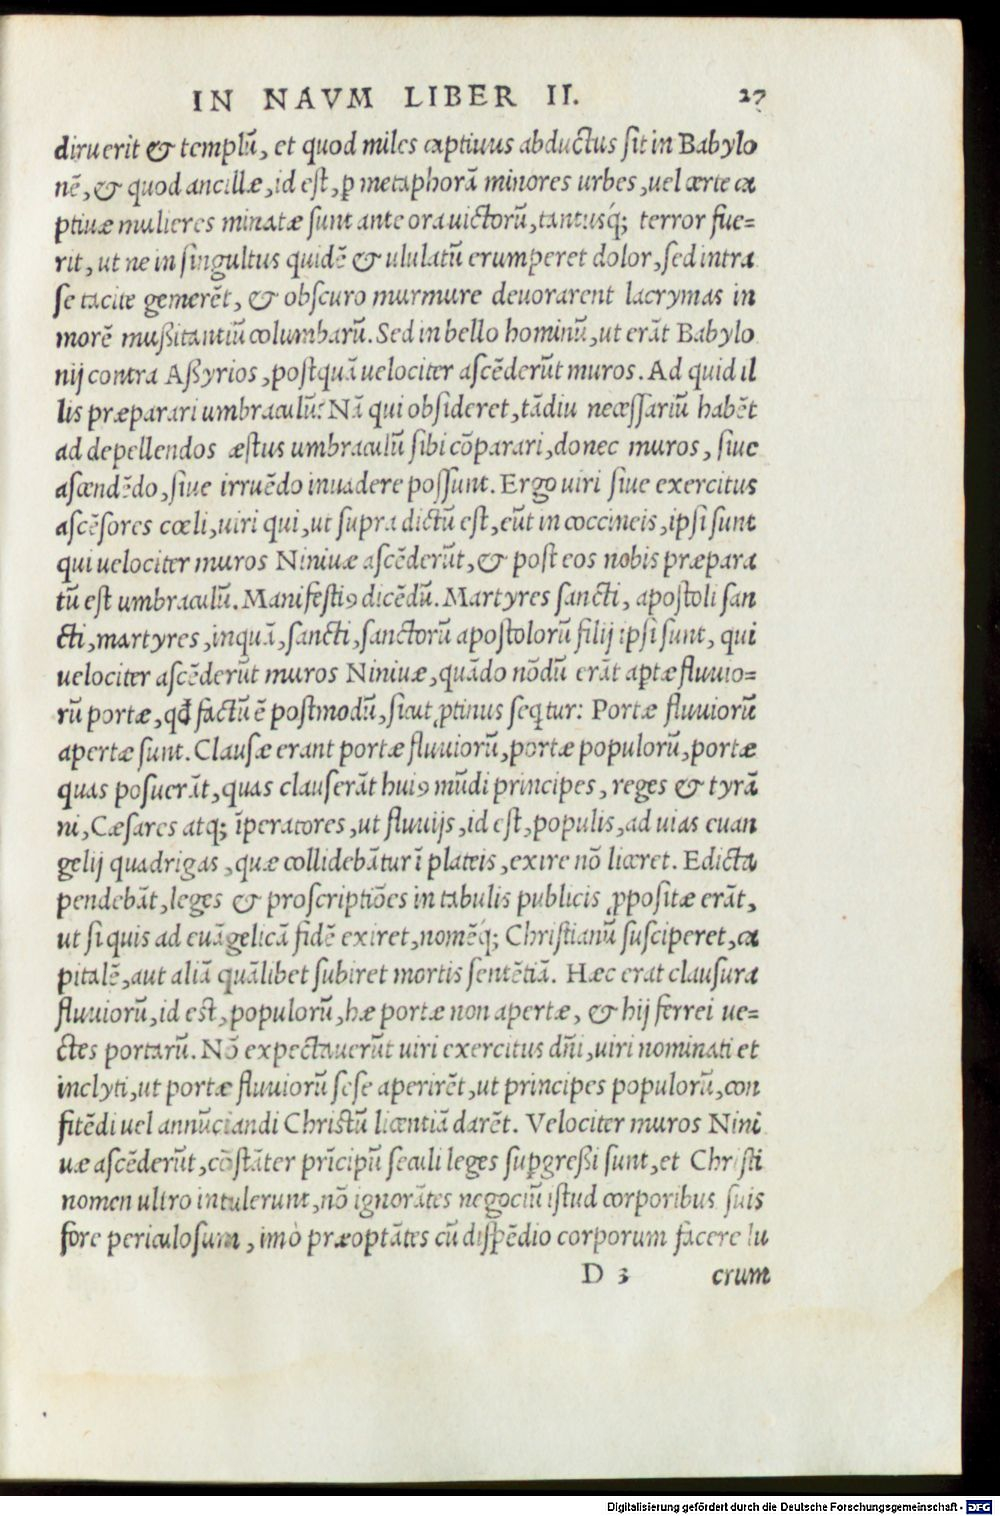 IN NAVM LIBER II. 27
diruerit & templū, et quod miles captiuus abductus sit in Babylo
nē, & quod ancillæ, id est, p metaphorā minores urbes, uel certe ca
ptiuæ mulieres minatæ sunt ante ora uictorū, tantusq́; terror fue=
rit, ut ne in singultus quidē & ululatū erumperet dolor, sed intra
se tacite gemerēt, & obscuro murmure deuorarent lacrymas in
morē mußitantiū columbarū. Sed in bello hominū, ut erāt Babylo
nij contra Aßyrios, postquā uelociter ascēderūt muros. Ad quid il
lis præparari umbraculū? Nā qui obsideret, tādiu necessariū habēt
ad depellendos æstus umbraculū sibi cōparari, donec muros, siue
ascendēdo, siue irruēdo inuadere possunt. Ergo uiri siue exercitus
ascēsores cœli, uiri qui, ut supra dictū est, eūt in coccineis, ipsi sunt
qui uelociter muros Niniuæ ascēderūt, & post eos nobis præpara
tū est umbraculū. Manifestiꝰ dicēdū. Martyres sancti, apostoli san
cti, martyres, inquā, sancti, sanctorū apostolorū filij ipsi sunt, qui
uelociter ascēderūt muros Niniuæ, quādo nōdū erāt aptæ fluuio=
rū portæ, qd̄ factū ē postmodū, sicut ꝓtinus seqtur: Portæ fluuiorū
apertæ sunt. Clausæ erant portæ fluuiorū, portæ populorū, portæ
quas posuerāt, quas clauserāt huiꝰ mūdi principes, reges & tyrā
ni, Cæsares atq; īperatores, ut fluuijs, id est, populis, ad uias euan
gelij quadrigas, quæ collidebātur ī plateis, exire nō liceret. Edicta
pendebāt, leges & proscriptiōes in tabulis publicis ꝓpositæ erāt,
ut si quis ad euāgelicā fidē exiret, nomēq́; Christianū susciperet, ca
pitalē, aut aliā quālibet subiret mortis sentētiā. Hæc erat clausura
fluuiorū, id est, populorū, hæ portæ non apertæ, & hij ferrei ue=
ctes portarū. Nō expectauerūt uiri exercitus dn̄i, uiri nominati et
inclyti, ut portæ fluuiorū sese aperirēt, ut principes populorū, con
fitēdi uel annūciandi Christū licentiā darēt. Velociter muros Nini
uæ ascēderūt, cōstāter prīcipū seculi leges suꝑgreßi sunt, et Christi
nomen ultro intulerunt, nō ignorātes negociū istud corporibus suis
fore periculosum, imò præoptātes cū dispēdio corporum facere lu
D 3 crum
Digitalisierung gefördert durch die Deutsche Forschungsgemeinschaft - DFG